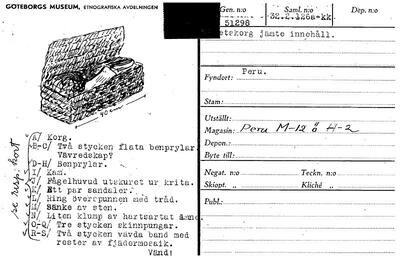 GÖTEBORGS MUSEUM, ETNOGRAFISKA AVDELNINGEN
Gen. n:o
Saml. n:o
Dep. n:o
51298
32.2.126a-kk
etskorg jämte innehåll.
Fyndort: Peru.
Stam:
Utställt:
Magasin: Peru M-12 ö H-2
Depon.:
Byte till:
Negat. n:o
Teckn. n:o
Skiopt. „
Kliché „
Publ.:
40 cm
se resp. kort
A/ Korg.
B-C/ Två stycken flata benprylar.
Vävredskap?
D-H/ Benprylar.
I/ Kam.
Fågelhuvud utskuret ur krita.
Ett par sandaler.
Ring överspunnen med tråd.
Sänke av sten.
N/ Liten klump av hartsartat ämne.
O-Q/ Tre stycken skinnpungar.
R-S/ Två stycken vävda band med
rester av fjädermosaik.
Vänd!